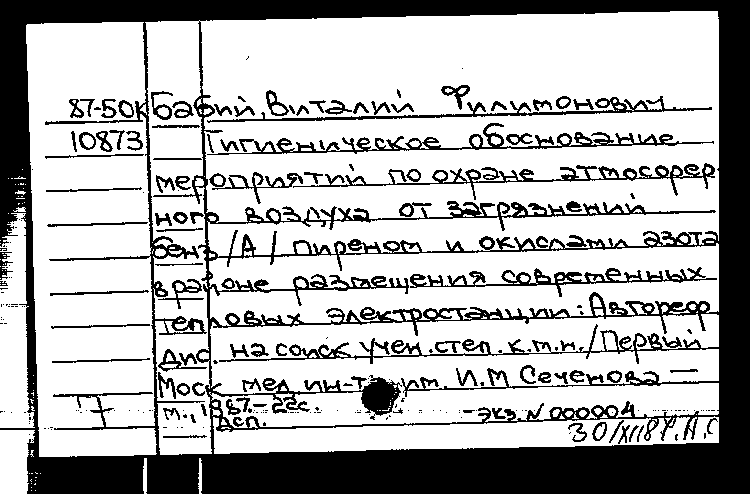 87-50К Бабий, Виталий Филимонович.
10873 Гигиеническое обоснование
мероприятий по охране атмосфер-
ного воздуха от загрязнений
бенз/А/пиреном и окислами азота
в районе размещения современных
тепловых электростанции: Автореф.
дис. на соиск. учен. степ. к.т.н./Первый
Моск. мед. ин-т им. И.М Сеченова —
7 М., 1987.-22с. - экз. N 000004.
Дсп.